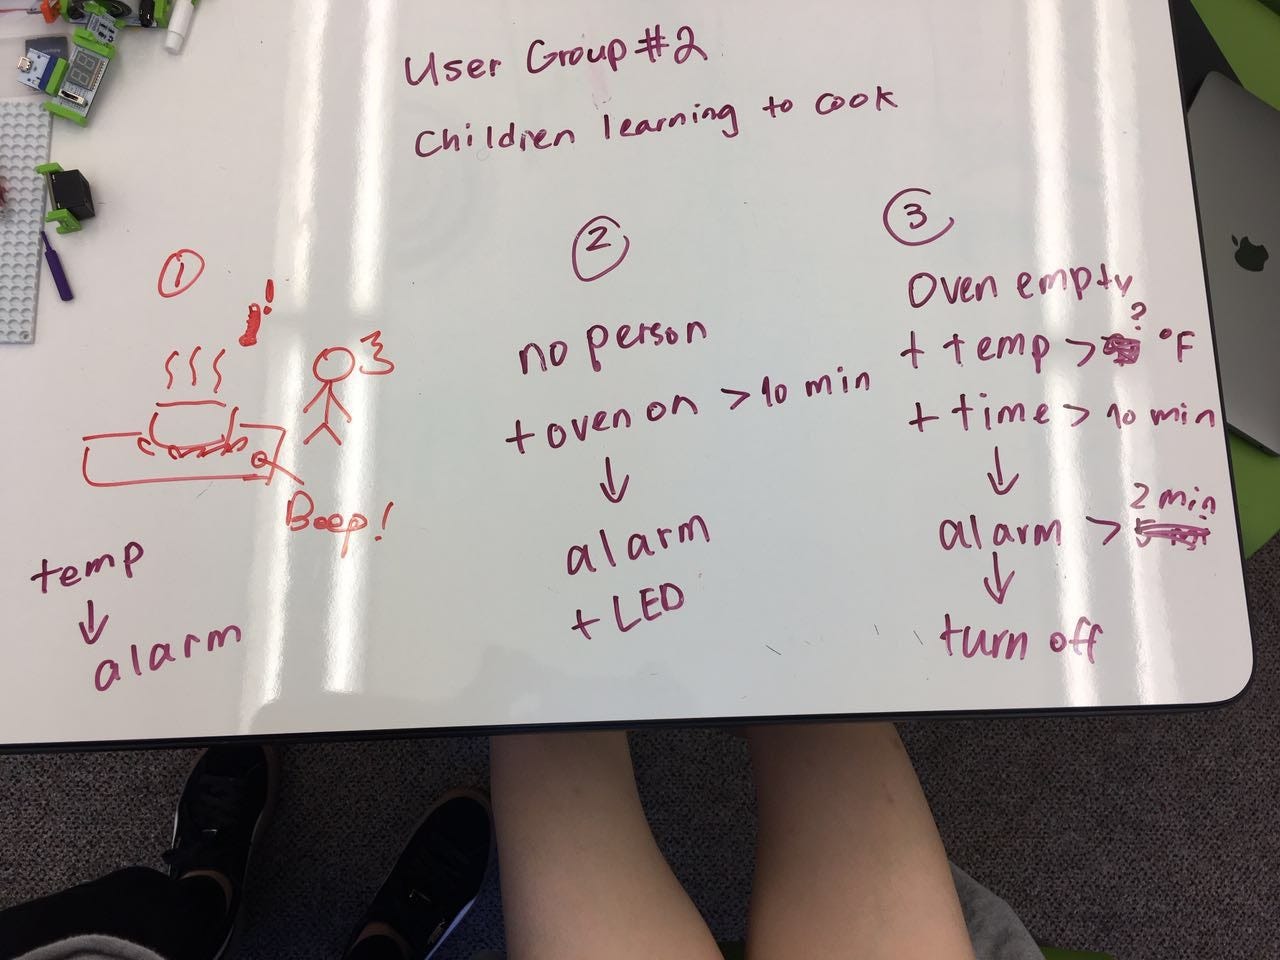 User Group #2
Children learning to cook
1
!
Beep!
temp
↓
alarm
2
no person
+ oven on > 10 min
↓
alarm
+ LED
3
Oven empty
+ temp > ? °F
+ time > 10 min
↓
alarm > 2 min
↓
turn off